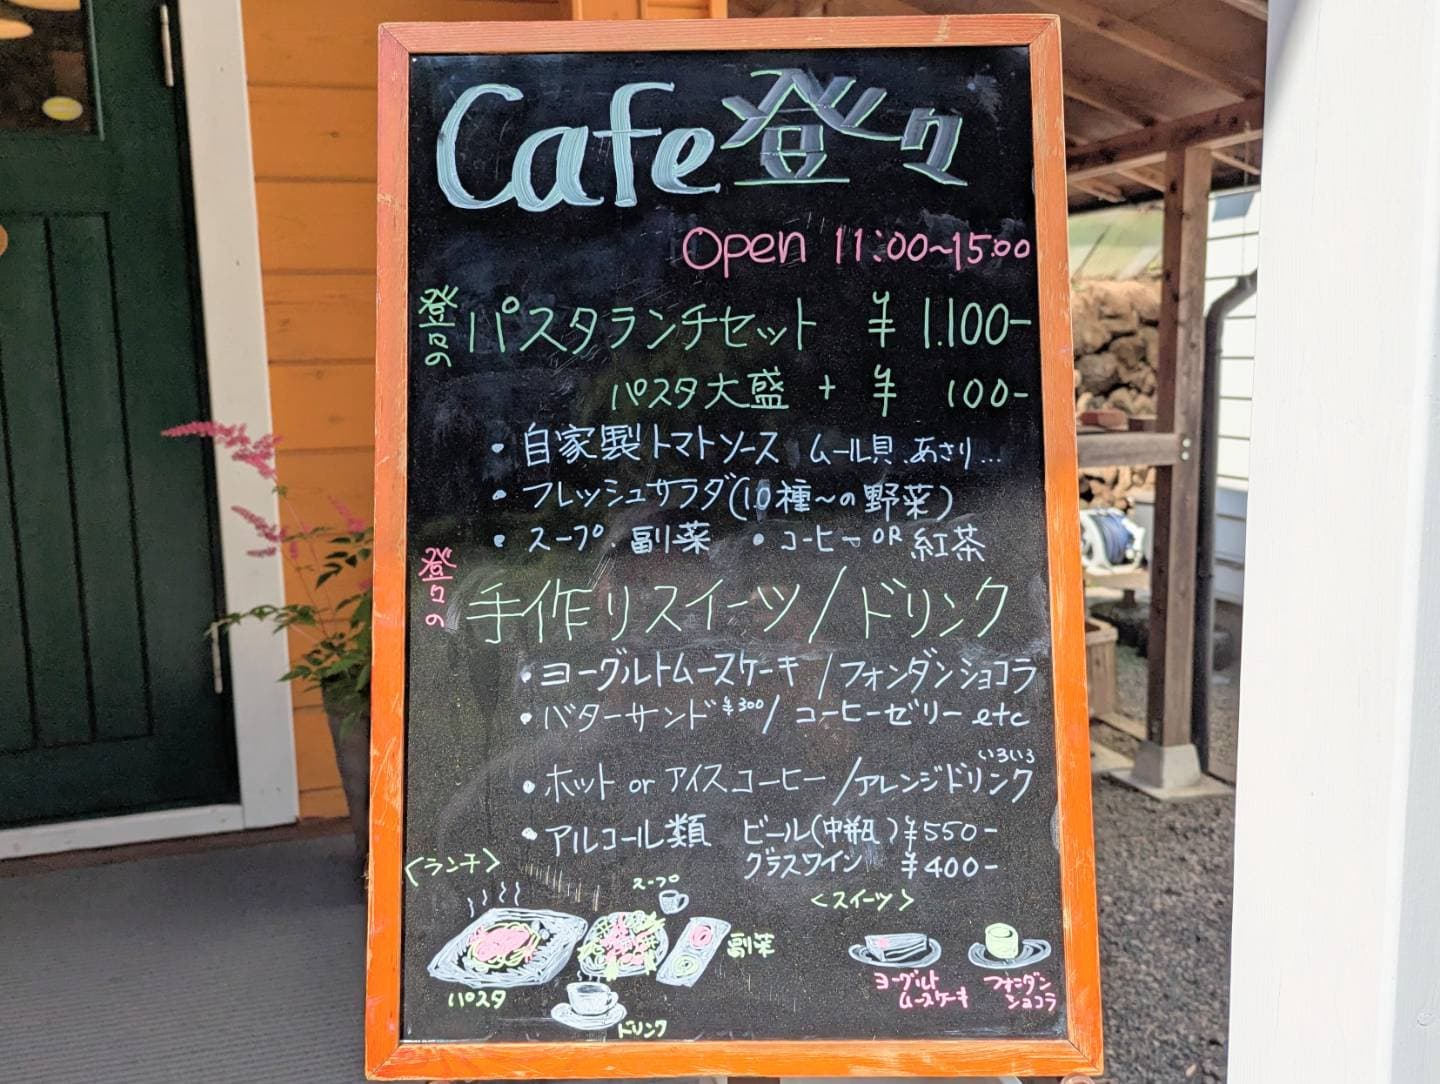 Cafe 登々
Open 11:00~15:00
登々の パスタランチセット ¥1.100-
パスタ大盛 + ¥ 100-
・自家製トマトソース ムール貝.あさり...
・フレッシュサラダ(10種~の野菜)
・スープ.副菜 ・コーヒーOR紅茶
登々の 手作りスイーツ/ドリンク
・ヨーグルトムースケーキ/フォンダンショコラ
・バターサンド¥300/コーヒーゼリーetc
いろいろ
・ホットorアイスコーヒー/アレンジドリンク
・アルコール類 ビール(中瓶)¥550-
グラスワイン ¥400-
<ランチ>
スープ
<スイーツ>
副菜
パスタ
ドリンク
ヨーグルト
ムースケーキ
フォンダン
ショコラ